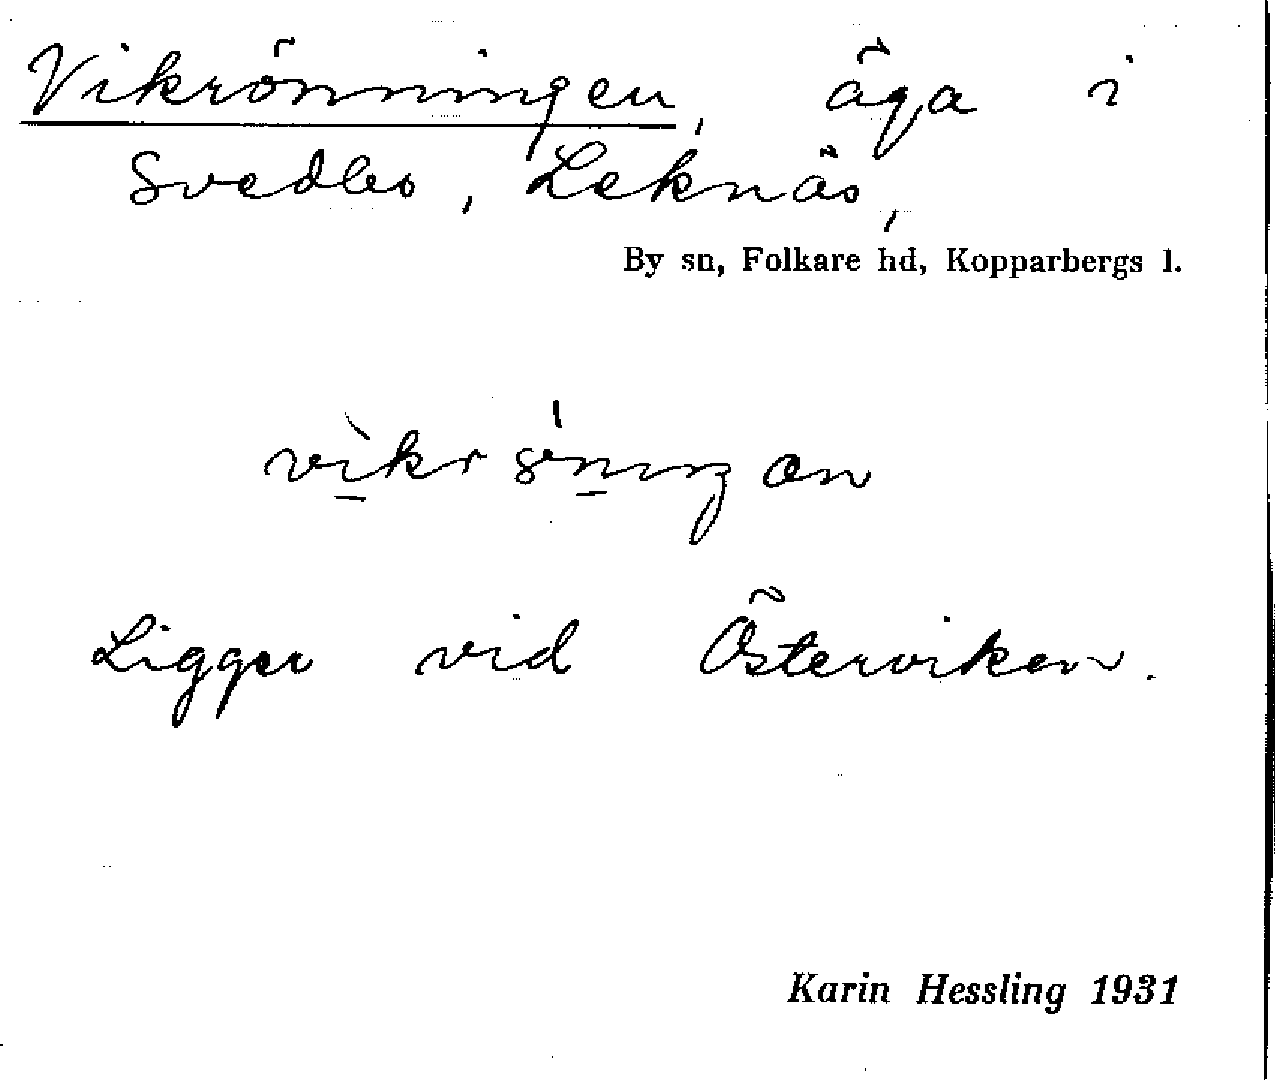 Vikrönningen, äga i
Svedbo, Leknäs,
By sn, Folkare hd, Kopparbergs l.
Ligger vid Österviken.
Karin Hessling 1931